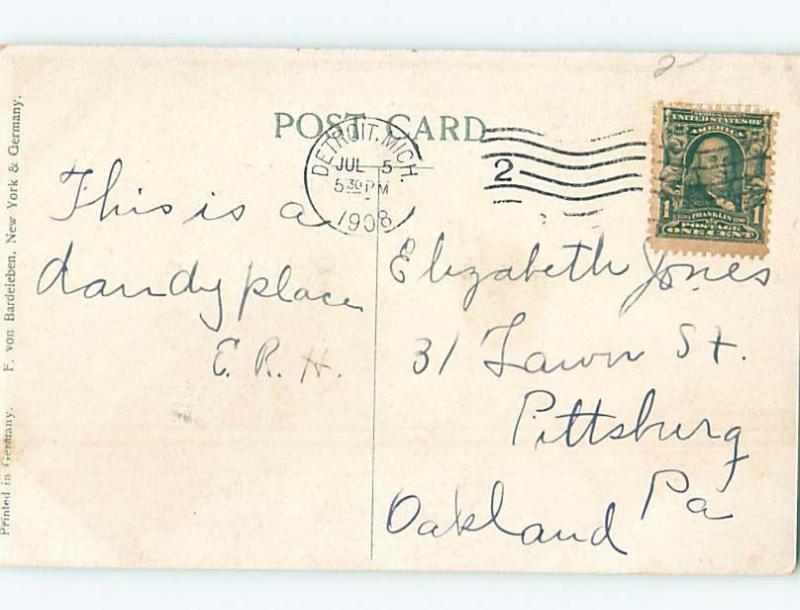 2
POST CARD
DETROIT, MICH.
JUL 5
5 30 PM
1908
2
UNITED STATES OF
AMERICA
1 FRANKLIN 1
POSTAGE
ONE CENT
This is a
dandy place
E. R. H.
Elizabeth Jones
31 Lawn St.
Pittsburg
Pa
Oakland
Printed in Germany. F. von Bardeleben, New York & Germany.